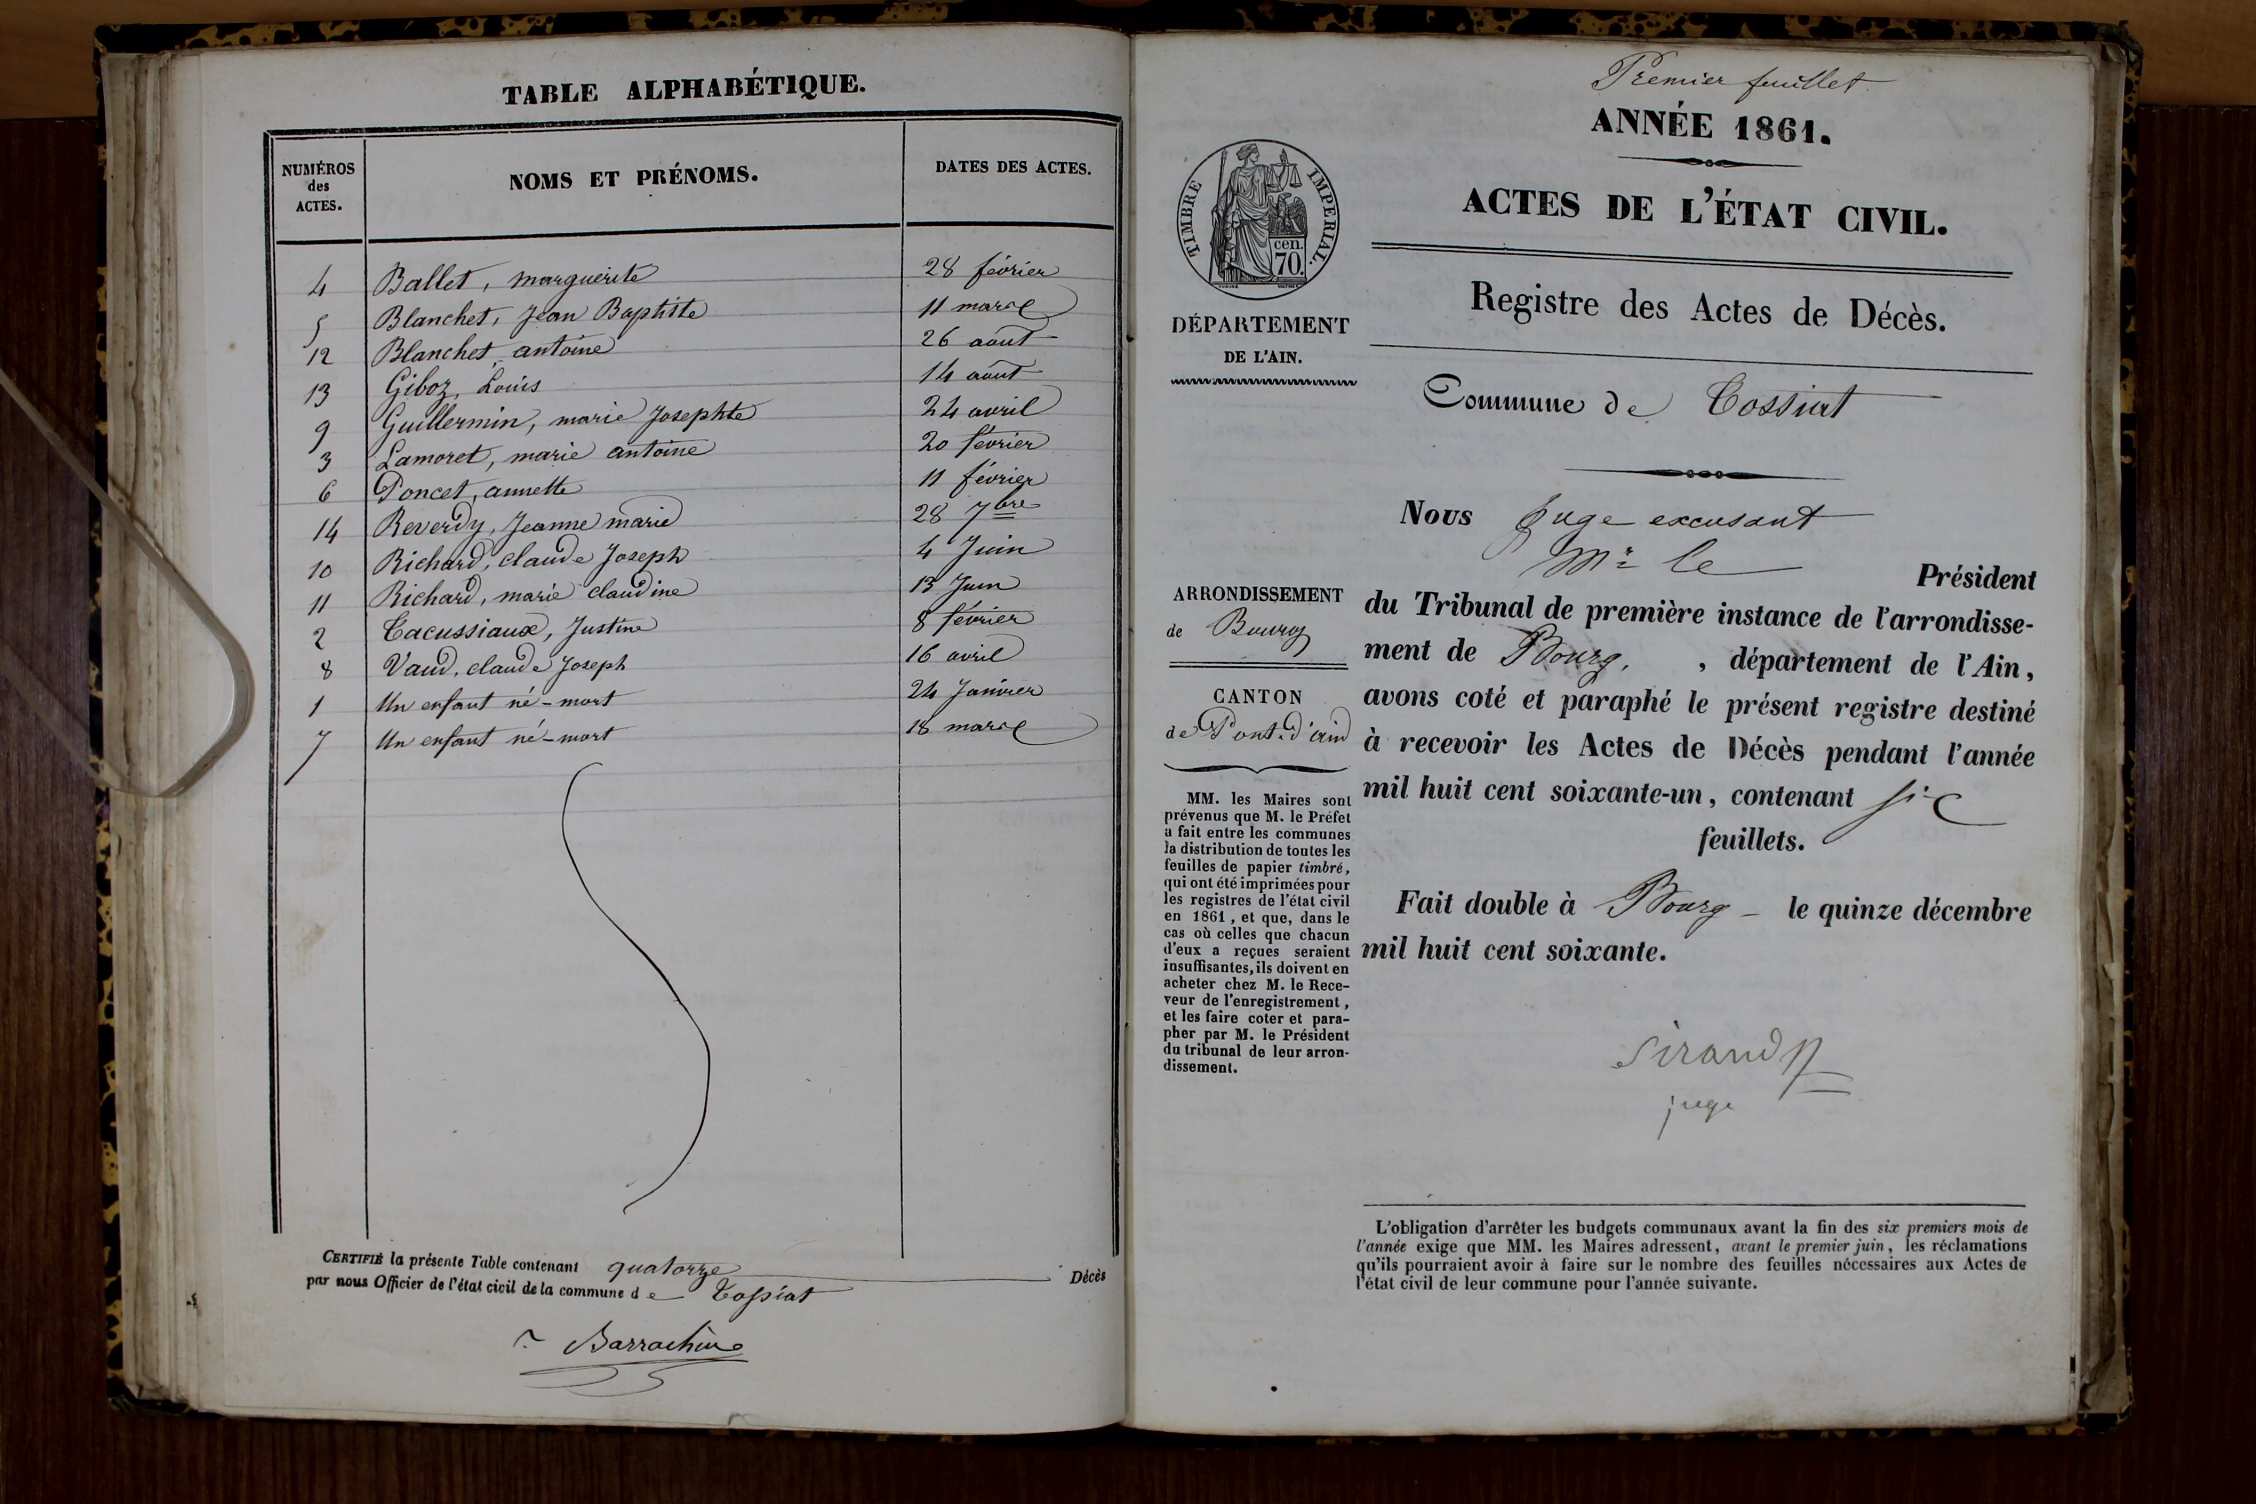 TABLE ALPHABÉTIQUE.
NUMÉROS
des
ACTES.
NOMS ET PRÉNOMS.
DATES DES ACTES.
4 Ballet, marguerite 28 février
5 Blanchet, Jean Baptiste 11 mars
12 Blanchet, antoine 26 août
13 Giboz, Louis 14 août
9 Guillermin, marie Josephte 24 avril
3 Lamoret, marie antoine 20 février
6 Poncet, annette 11 février
14 Reverdy, Jeanne marie 28 7bre
10 Richard, claude Joseph 4 Juin
11 Richard, marie claudine 13 Juin
2 Tacussiaux, Justine 8 février
8 Vaud, claude Joseph 16 avril
1 Un enfant né-mort 24 Janvier
7 Un enfant né-mort 18 mars
CERTIFIÉ la présente Table contenant quatorze Décès
par nous Officier de l'état civil de la commune de Tossiat
Premier feuillet
ANNÉE 1861.
ACTES DE L'ÉTAT CIVIL.
TIMBRE IMPERIAL.
cen.
70.
DÉPARTEMENT
DE L'AIN.
Registre des Actes de Décès.
Commune de Tossiat
Nous Juge excusant
Mr le Président
du Tribunal de première instance de l'arrondisse-
ment de Bourg, , département de l'Ain,
avons coté et paraphé le présent registre destiné
à recevoir les Actes de Décès pendant l'année
mil huit cent soixante-un, contenant six
feuillets.
Fait double à Bourg – le quinze décembre
mil huit cent soixante.
Sirand
juge
ARRONDISSEMENT
de Bourg
CANTON
de Pont-d'ain
MM. les Maires sont
prévenus que M. le Préfet
a fait entre les communes
la distribution de toutes les
feuilles de papier timbré,
qui ont été imprimées pour
les registres de l'état civil
en 1861, et que, dans le
cas où celles que chacun
d'eux a reçues seraient
insuffisantes, ils doivent en
acheter chez M. le Rece-
veur de l'enregistrement,
et les faire coter et para-
pher par M. le Président
du tribunal de leur arron-
dissement.
L'obligation d'arrêter les budgets communaux avant la fin des six premiers mois de
l'année exige que MM. les Maires adressent, avant le premier juin, les réclamations
qu'ils pourraient avoir à faire sur le nombre des feuilles nécessaires aux Actes de
l'état civil de leur commune pour l'année suivante.